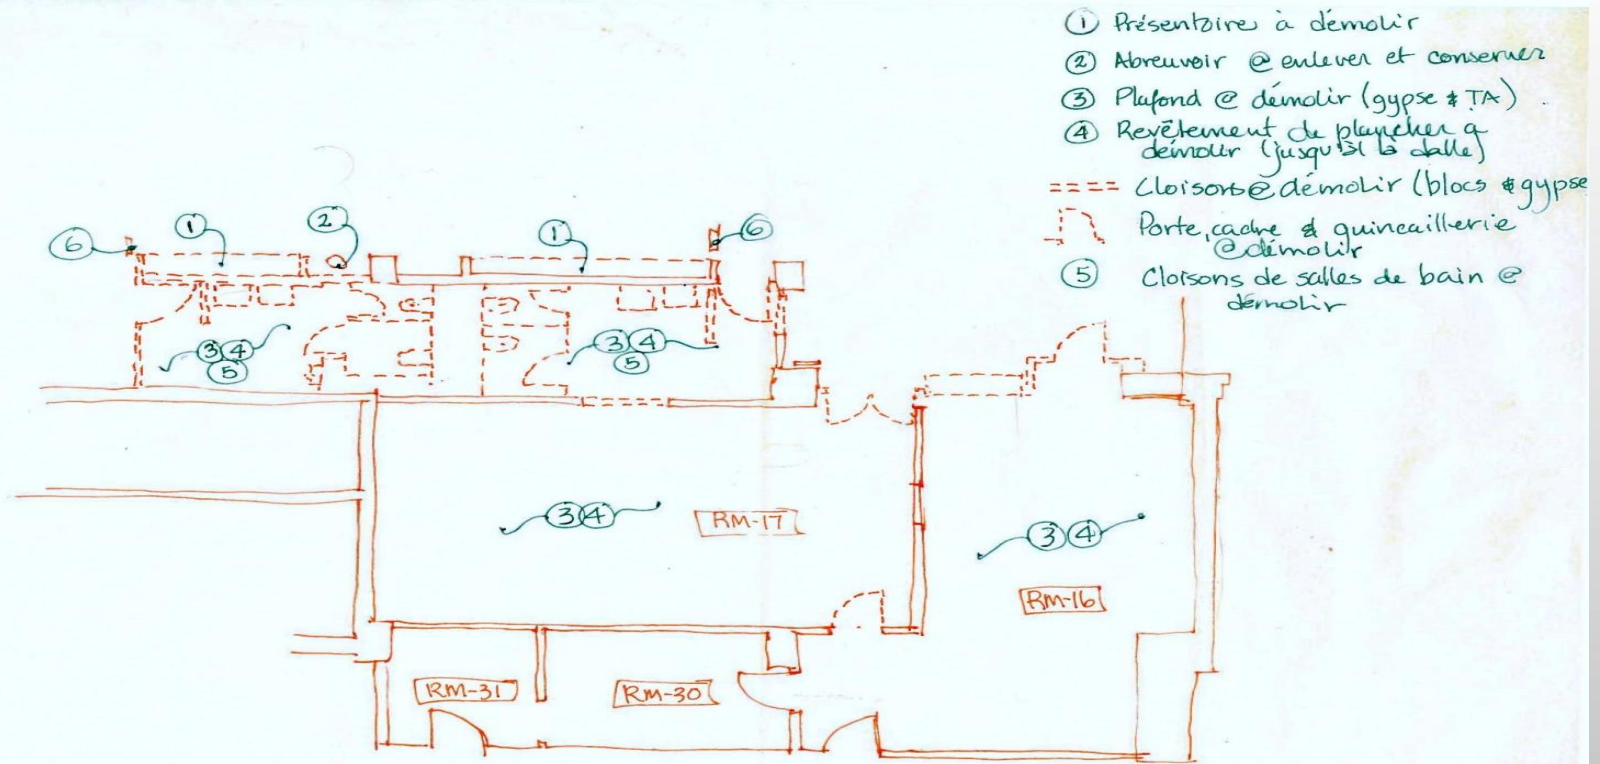 ① Présentoire à démolir
② Abreuvoir @ enlever et conserver
③ Plafond @ démolir (gypse & TA)
④ Revêtement de plancher à
démolir (jusqu'à la dalle)
==== Cloisons @ démolir (blocs & gypse
Porte, cadre & quincaillerie
@ démolir
⑤ Cloisons de salles de bain @
démolir
⑥ ① ② ① ⑥
③④
⑤
③④
⑤
③④ RM-17
③④
RM-16
RM-31 RM-30